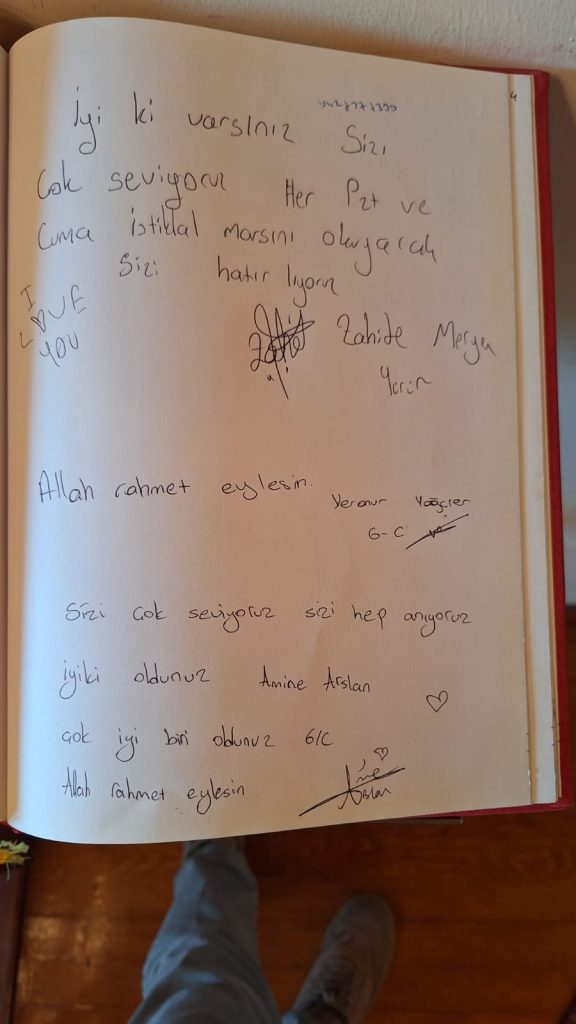 iyi ki varsınız Sizi
Çok seviyoruz Her Pzt ve
Cuma istiklal marsını okuyarak
Sizi hatırlıyoruz
I
LOVE
YOU
Zahide Meryem
Allah rahmet eylesin.
Yağcıer
6-C
Sizi çok seviyoruz sizi hep anıyoruz
iyiki oldunuz Amine Arslan
çok iyi biri oldunuz 6/C
Allah rahmet eylesin
Arslan